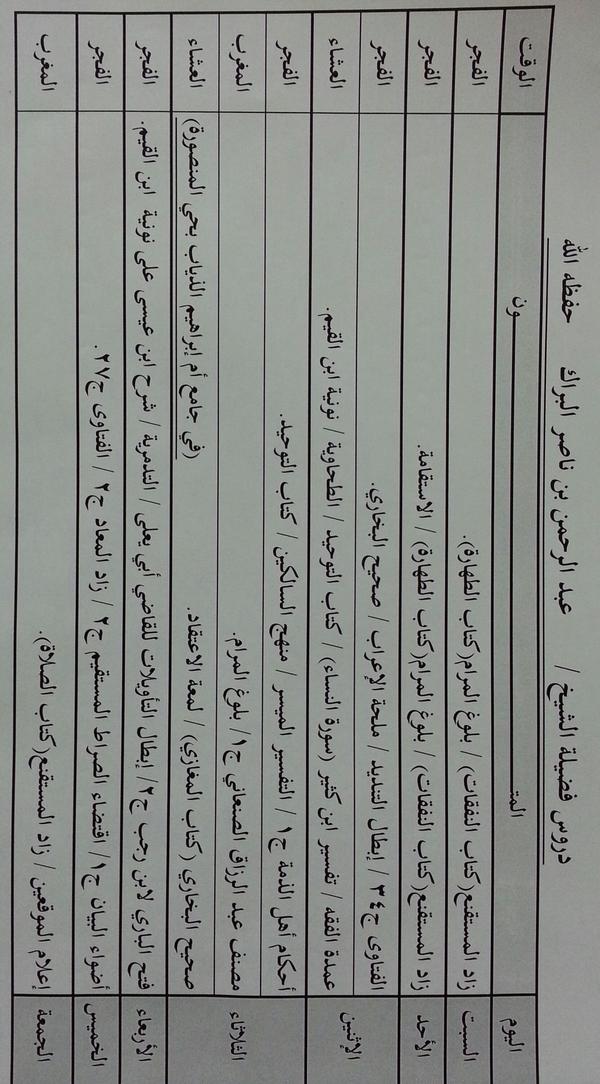 دروس فضيلة الشيخ / عبد الرحمن بن ناصر البراك حفظه الله
اليوم المتـــــــــون الوقت
السبت زاد المستقنع(كتاب النفقات) / بلوغ المرام(كتاب الطهارة). الفجر
الأحد زاد المستقنع(كتاب النفقات) / بلوغ المرام(كتاب الطهارة) / الاستقامة. الفجر
الإثنين الفتاوى ج٣٤ / إبطال التنديد / ملحة الإعراب / صحيح البخاري. الفجر
عمدة الفقه / تفسير ابن كثير (سورة النساء) / كتاب التوحيد / الطحاوية / نونية ابن القيم. العشاء
الثلاثاء أحكام أهل الذمة ج١ / التفسير الميسر / منهج السالكين / كتاب التوحيد. الفجر
مصنف عبد الرزاق الصنعاني ج١/ بلوغ المرام. المغرب
صحيح البخاري (كتاب المغازي) / لمعة الاعتقاد. (في جامع أم إبراهيم الذياب بحي المنصورة) العشاء
الأربعاء فتح الباري لابن رجب ج٢/ إبطال التأويلات للقاضي أبي يعلى / التدمرية / شرح ابن عيسى على نونية ابن القيم. الفجر
الخميس أضواء البيان ج١/ اقتضاء الصراط المستقيم ج٢ / زاد المعاد ج٢ / الفتاوى ج٢٧. الفجر
الجمعة إعلام الموقعين / زاد المستقنع(كتاب الصلاة). المغرب